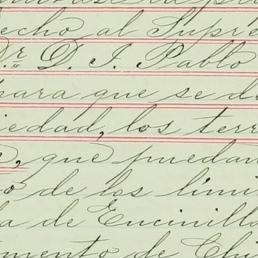 echo al Supre
Dr. D. J. Pablo
para que se d
iedad, los terr
, que puedan
ó de los límit
la de Encinilla
mento de Chi